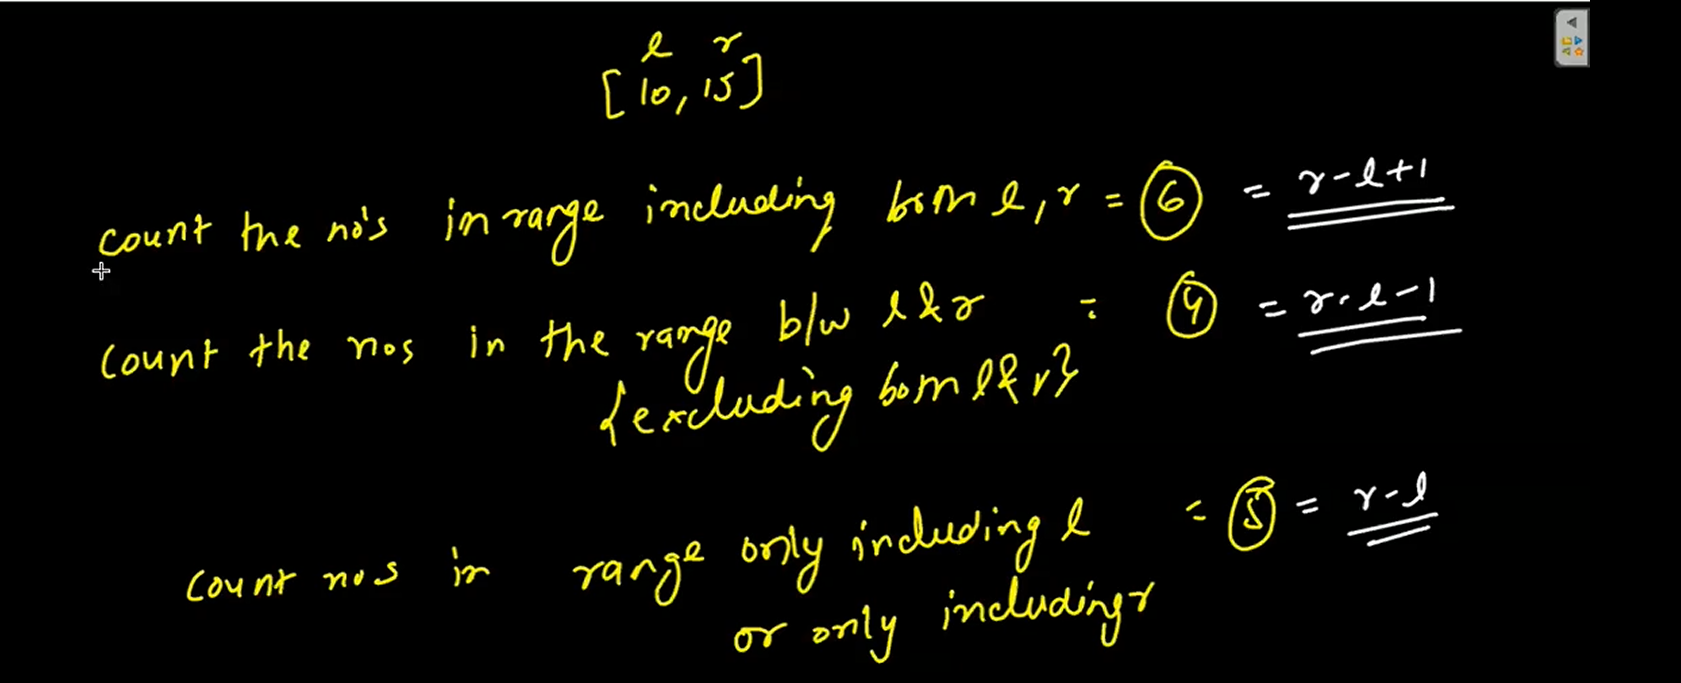 l r
[10, 15]
count the no's in range including both l, r = 6 = r-l+1
count the nos in the range b/w l & r = 4 = r-l-1
{excluding both l & r}
count nos in range only including l = 5 = r-l
or only including r